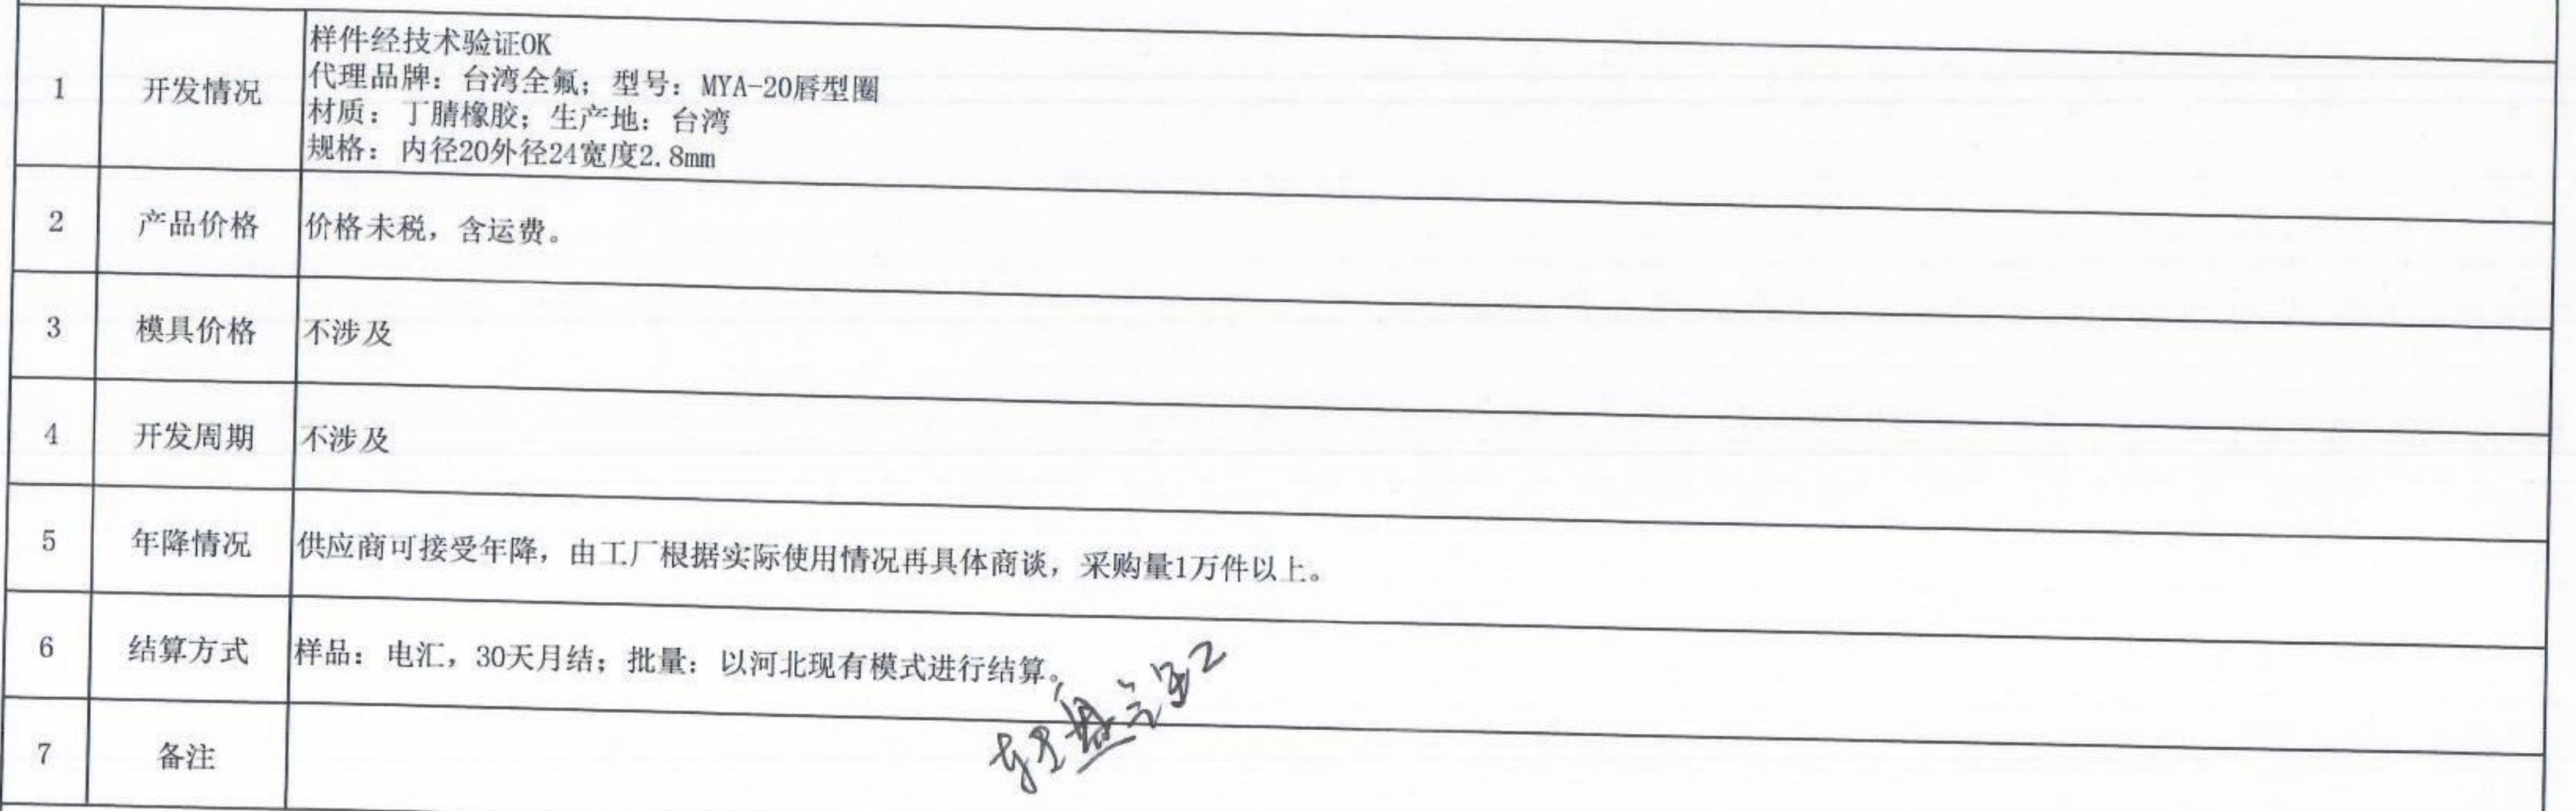 1 开发情况 样件经技术验证OK
代理品牌：台湾全氟；型号：MYA-20唇型圈
材质：丁腈橡胶；生产地：台湾
规格：内径20外径24宽度2.8mm
2 产品价格 价格未税，含运费。
3 模具价格 不涉及
4 开发周期 不涉及
5 年降情况 供应商可接受年降，由工厂根据实际使用情况再具体商谈，采购量1万件以上。
6 结算方式 样品：电汇，30天月结；批量：以河北现有模式进行结算。
7 备注